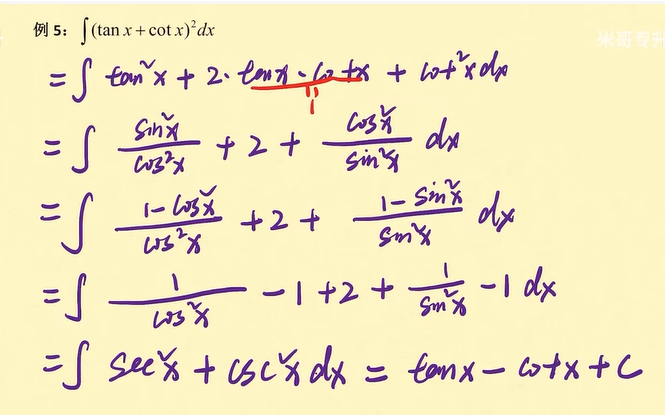 例 5: ∫(tan x + cot x)²dx
米哥专升
= ∫ tan²x + 2·tanx·cotx + cot²x dx
1
= ∫ sin²x/cos²x + 2 + cos²x/sin²x dx
= ∫ 1-cos²x/cos²x + 2 + 1-sin²x/sin²x dx
= ∫ 1/cos²x - 1 + 2 + 1/sin²x - 1 dx
= ∫ sec²x + csc²x dx = tanx - cotx + C